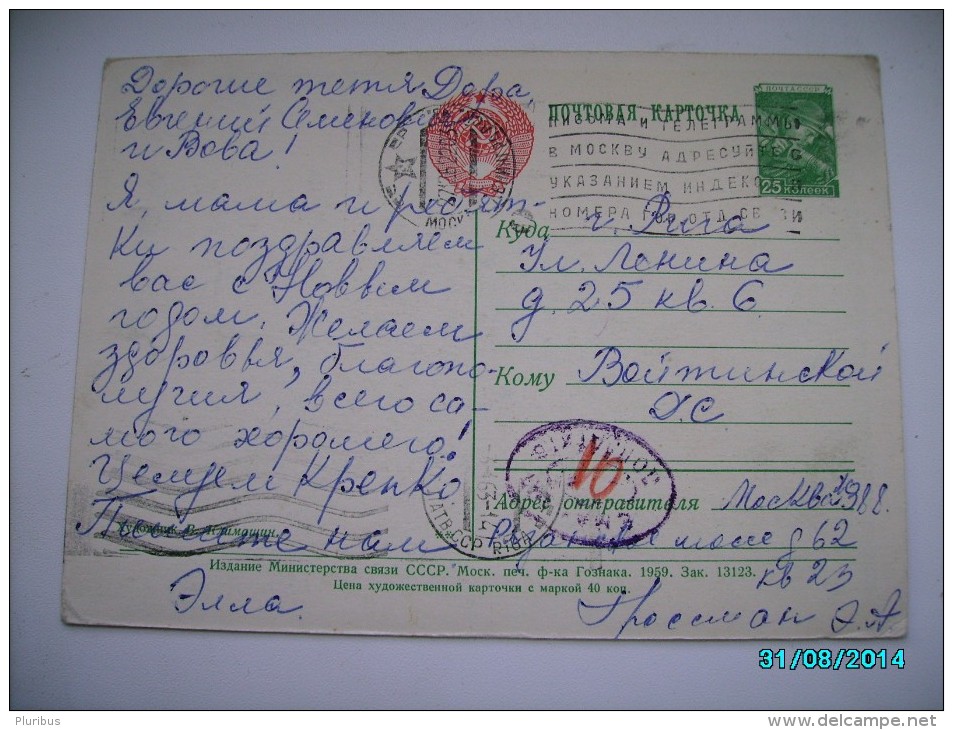 Дорогие тетя Дора,
Евгений Семенов
и Вова!
Я, мама и ребят-
ки поздравляем
вас с Новым
годом. Желаем
здоровья, благопо-
лучия, всего са-
мого хорошего!
Целуем Крепко
нам
Элла.
ПОЧТОВАЯ КАРТОЧКА
ПОЧТА СССР
25 КОПЕЕК
ПИСЬМА И ТЕЛЕГРАММЫ
В МОСКВУ АДРЕСУЙТЕ С
УКАЗАНИЕМ ИНДЕКСА
НОМЕРА ГОР. ОТД. СВЯЗИ
МОСК
Куда г. Рига
Ул. Ленина
д. 25 кв. 6
Кому Войтинской
Д.С
10
RIGA
Адрес отправителя Москва
шоссе д 62
кв 23
Гроссман Э.А.
Художник
Издание Министерства связи СССР. Моск. печ. ф-ка Гознака. 1959. Зак. 13123.
Цена художественной карточки с маркой 40 коп.
31/08/2014
Pluribus
delcampe.net